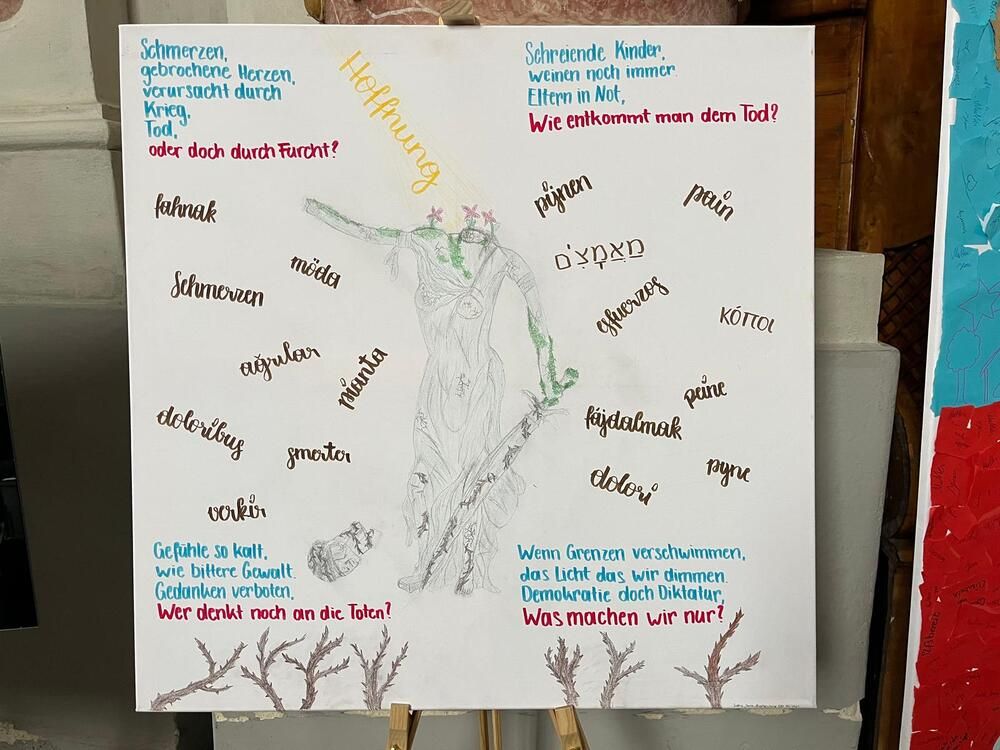 Schmerzen,
gebrochene Herzen,
verursacht durch
Krieg,
Tod,
oder doch durch Furcht?
Hoffnung
Schreiende Kinder,
weinen noch immer.
Eltern in Not,
Wie entkommt man dem Tod?
fahnak
möda
Schmerzen
ağrılar
mánta
doloribus
smerter
verkir
pijnen
pain
מַאֲמָצִים
esfuerzos
κόποι
peine
fájdalmak
pyne
dolori
Gefühle so kalt,
wie bittere Gewalt.
Gedanken verboten,
Wer denkt noch an die Toten?
Wenn Grenzen verschwimmen,
das Licht das wir dimmen.
Demokratie doch Diktatur,
Was machen wir nur?